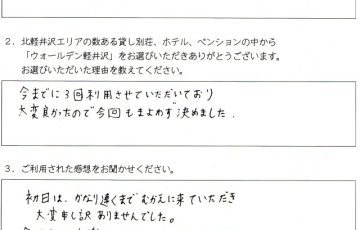 2．北軽井沢エリアの数ある貸し別荘、ホテル、ペンションの中から
「ウォールデン軽井沢」をお選びいただきありがとうございます。
お選びいただいた理由を教えてください。
今までに3回利用させていただいており
大変良かったので今回もまよわず決めました．
3．ご利用された感想をお聞かせください。
初日は、かなり遅くまでむかえに来ていただき
大変申し訳ありませんでした。